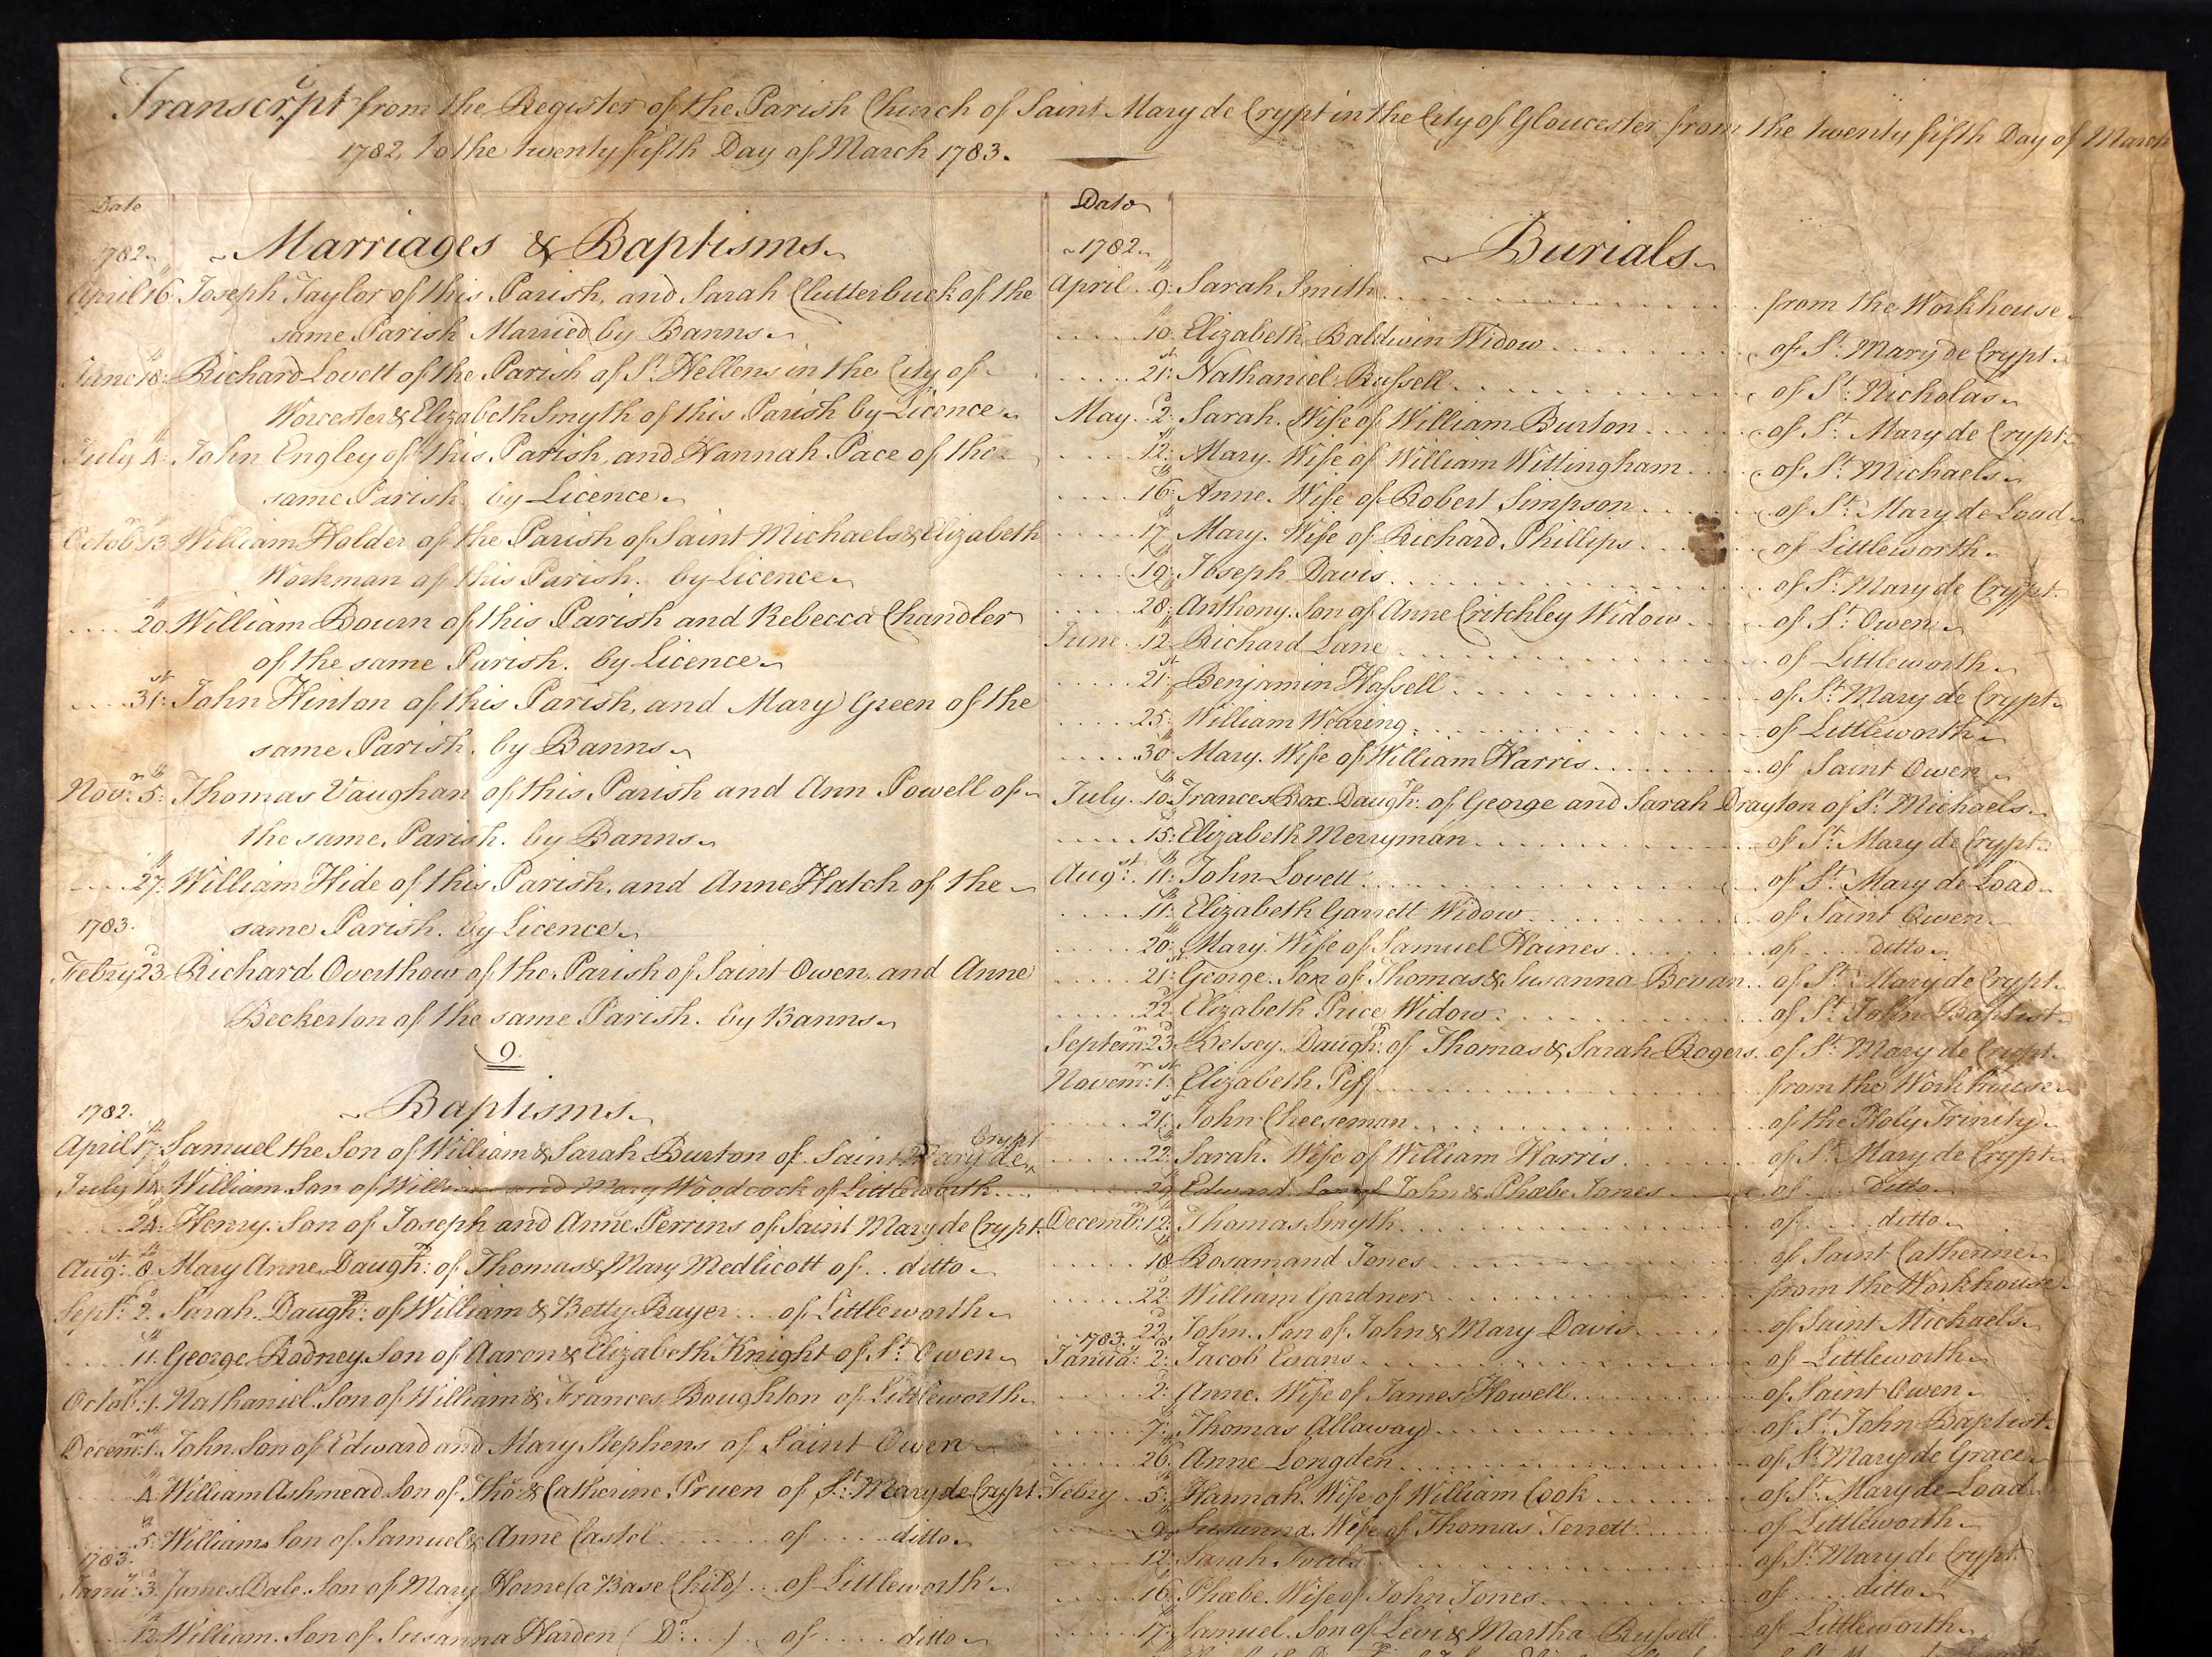 Transcript from the Register of the Parish Church of Saint Mary de Crypt in the City of Gloucester from the twenty fifth Day of March
1782, to the twenty fifth Day of March 1783.
Date
1782. Marriages & Baptisms
April 16th Joseph Taylor of this Parish, and Sarah Clutterbuck of the
same Parish Married by Banns
June 18th: Richard Lovett of the Parish of St. Hellens in the City of
Worcester & Elizabeth Smyth of this Parish by Licence
July 4th: John Engley of this Parish, and Hannah Pace of the
same Parish. by Licence
Octobr 13th William Holder of the Parish of Saint Michaels & Elizabeth
Workman of this Parish. by Licence
.... 20th William Bourn of this Parish and Rebecca Chandler
of the same Parish. by Licence
.... 31st: John Hinton of this Parish, and Mary Green of the
same Parish. by Banns
Novr: 5th: Thomas Vaughan of this Parish and Ann Powell of
the same Parish. by Banns
.... 27th: William Hide of this Parish, and Anne Hatch of the
1783. same Parish. by Licence
Febry 23d Richard Overthow of the Parish of Saint Owen, and Anne
Beckerton of the same Parish. by Banns
9.
1782. Baptisms
April 17th Samuel the Son of William & Sarah Burton of Saint Mary de Crypt
July 14th William Son of William and Mary Woodcock of Littleworth
.... 24th Henry. Son of Joseph and Anne Perrins of Saint Mary de Crypt
Augst: 8th Mary Anne Daughr: of Thomas & Mary Medlicott of .. ditto
Sept: 2d. Sarah. Daughr: of William & Betty Rayer ... of Littleworth
.... 11th: George Rodney Son of Aaron & Elizabeth Knight of St: Owen
Octobr: 1. Nathaniel Son of William & Frances Boughton of Littleworth
Decemr: 1st. John. Son of Edward and Mary Stephens of Saint Owen
.... 4th William Ashmead Son of Tho: & Catherine Pruen of St: Mary de Crypt
.... 5th: William Son of Samuel & Anne Castel ...... of .... ditto
1783.
Janu: 3d. James Dale. Son of Mary Horne (a Base Child) .. of Littleworth
.... 12th William. Son of Susanna Harden ( Do: ... ) .. of .... ditto
Date
1782 Burials
April .. 9th: Sarah Smith .... from the Workhouse
.... 10th Elizabeth Baldwin Widow .... of St: Mary de Crypt
.... 21st: Nathaniel Russell .... of St: Nicholas
May .. 2d: Sarah. Wife of William Burton .... of St: Mary de Crypt
.... 12th: Mary. Wife of William Wittingham .... of St: Michaels
.... 16th: Anne. Wife of Robert Simpson .... of St: Mary de Load
.... 17th Mary. Wife of Richard Phillips .... of Littleworth
.... 19th: Joseph Davis .... of St: Mary de Crypt
.... 28th: Anthony. Son of Anne Critchley Widow .... of St: Owen
June .. 12th Richard Lane .... of Littleworth
.... 21st: Benjamin Hassell .... of St: Mary de Crypt
.... 25th: William Wearing .... of Littleworth
.... 30th Mary. Wife of William Harris .... of Saint Owen
July .. 10th Frances Box Daughr: of George and Sarah Drayton of St: Michaels
.... 15th: Elizabeth Merryman .... of St: Mary de Crypt
Augst: 11th: John Lovett .... of St: Mary de Load
.... 11th: Elizabeth Garrett Widow .... of Saint Owen
.... 20th: Mary. Wife of Samuel Haines .... of .... ditto
.... 21st: George. Son of Thomas & Susanna Bevan .. of St: Mary de Crypt
.... 22d Elizabeth Price Widow .... of St: John Baptist
Septemr: 23d Betsey. Daughr: of Thomas & Sarah Rogers .. of St: Mary de Crypt
Novemr: 1st: Elizabeth Piff .... from the Workhouse
.... 21st: John Cheeseman .... of the Holy Trinity
.... 22d: Sarah. Wife of William Harris .... of St: Mary de Crypt
.... 29th Edward Son of John & Phœbe Jones .... of .... ditto
Decembr: 12th: Thomas Smyth .... of .... ditto
.... 18th Rosamand Jones .... of Saint Catherine
.... 22d William Gardner .... from the Workhouse
.... 22d: John. Son of John & Mary Davis .... of Saint Michaels
1783.
Janua: 2d: Jacob Evans .... of Littleworth
.... 2d: Anne. Wife of James Howell .... of Saint Owen
.... 7th: Thomas Allaway .... of St: John Baptist
.... 26th: Anne Longden .... of St: Mary de Grace
Febry .. 5th: Hannah. Wife of William Cook .... of St: Mary de Load
.... 9th Susanna. Wife of Thomas Terrett .... of Littleworth
.... 12th: Sarah .... of St: Mary de Crypt
.... 16th: Phœbe. Wife of John Jones .... of .... ditto
.... 17th: Samuel. Son of Levi & Martha Russell .. of Littleworth